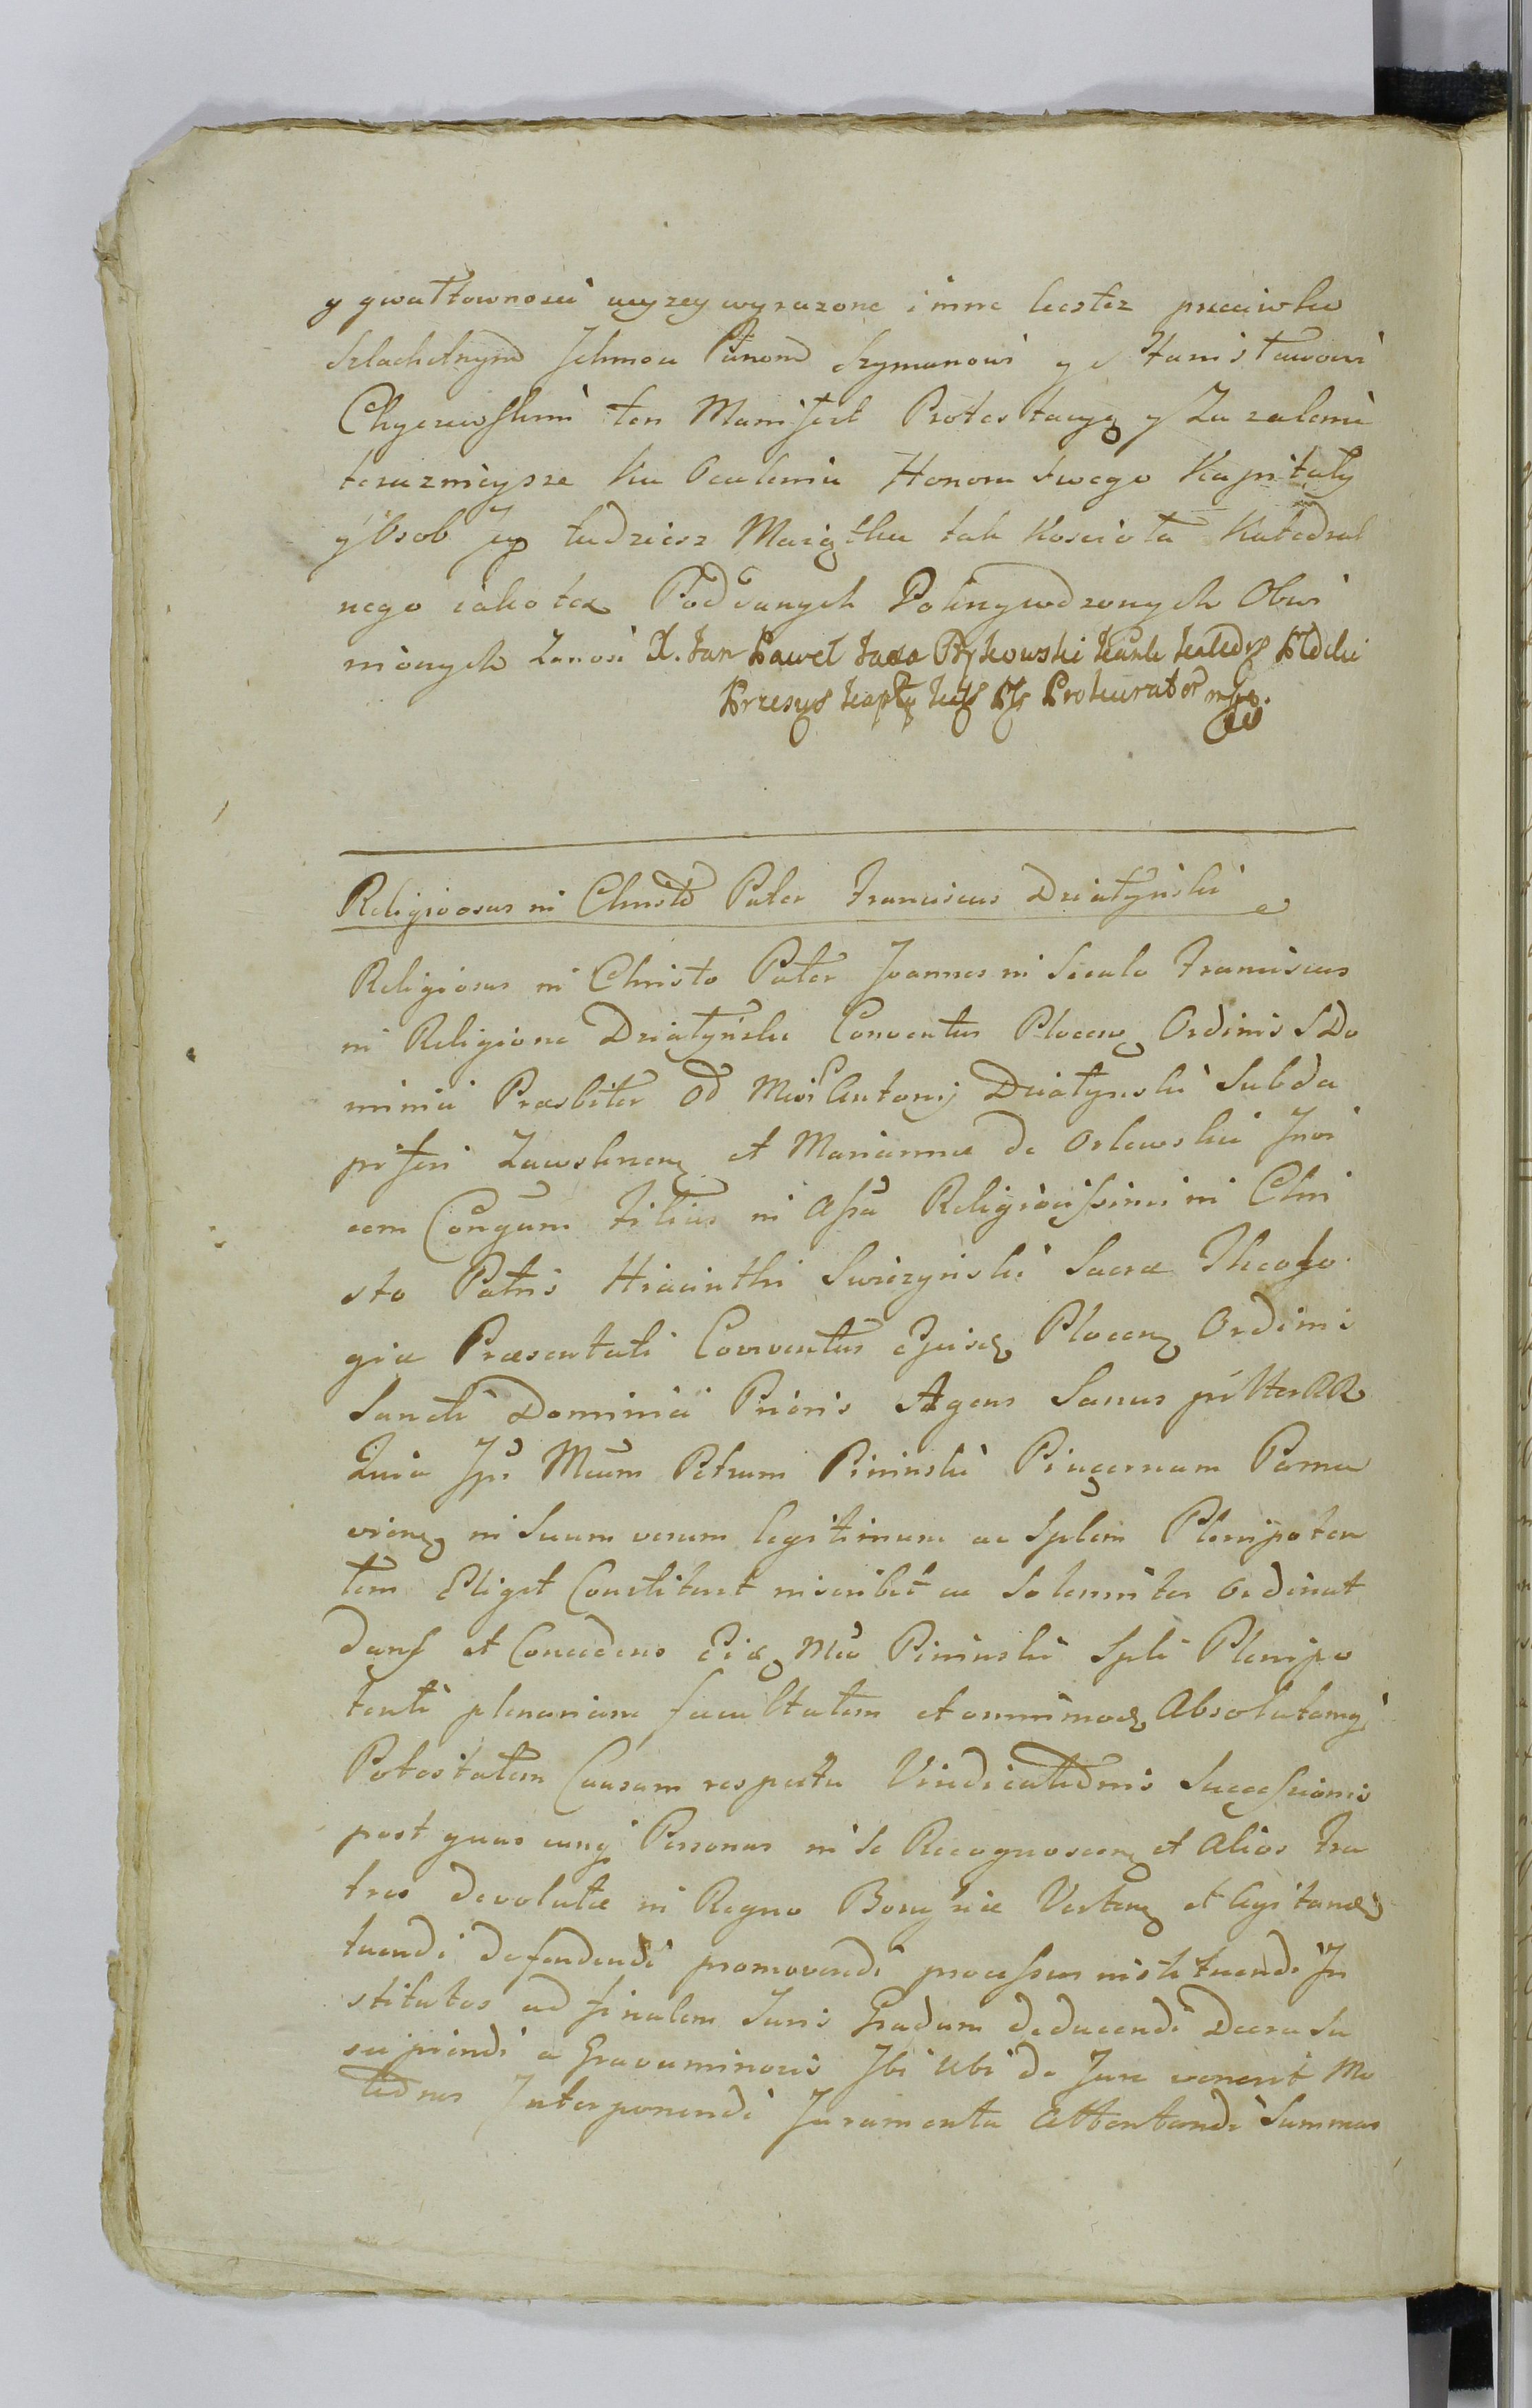 y gwałtowności wyzey wyrazone i inne leestez przeciwko
Szlachetnym Jchmou Panom Szymanowi y Stanisławowi
Chyczewskim ten Manifest Protestacyą y Zazalenie
teraznieysze ku Ocaleniu Honoru Swego Kapituły
y Osob Jey tudziesz Maiątku tak Koscioła Katedral
nego iako tez Poddanych Pokrzywdzonych Obwi
nionych Zanosi X. Jan Paweł Jaxa Bykowski
Prokurator
Religiosus in Christo Pater Franciscus Dziatyński
Religiosus in Christo Pater Joannes in Seculo Franciscus
in Religione Dziatyński Conventus Plocen Ordinis S Do
minici Præsbiter Od Antonij Dziatynski Subda
piferi Zawskrnen et Marianna de Orlewskie Jnvi
cem Conjgum Filius in Assa Religiosissimi in Chri
sto Patris Hiacinthi Swiezyński Sacræ Theolo
giæ Præsentati Conventus ejusd Plocen Ordinis
Sancti Dominici Prioris Agens Sanus
Quia Jps Petrum Pininski Pincernam Parna
vien in Suum verum legitimum ac Splem Plenipoten
tem Eligit Constituit inscribit ac Solemniter Ordinat
dans et Concedens Eid Mco Pininski Spli Plenipo
tenti plenariam facultatem et omnimod Absolutamq
Potestatem Causam respectu Vindicationis Successionis
post quascunq Personas in se Recognoscen et Alios Fra
tres devolutæ in Regno Borussiæ Verten et legitand
tuendi defendendi promovendi processus instituendi Jn
stitutos ad finalem Juris Gradum deducendi Decreta Su
scipiendi a Gravaminosis Jbi Ubi de Jure venerit Mo
tiones Jnterponendi Juramenta Attentandi Summas